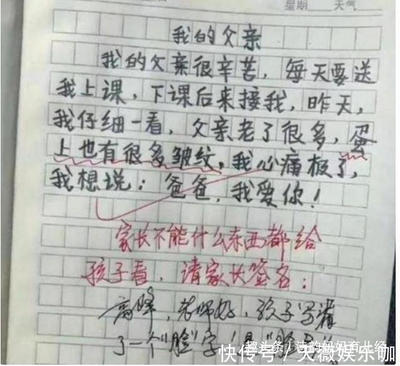 星期 天气
我的父亲
我的父亲很辛苦，每天要送
我上课，下课后来接我，昨天，
我仔细一看，父亲老了很多，蛋
上也有很多皱纹，我心痛极了，
我想说：爸爸，我爱你！
家长不能什么东西都给
孩子看，请家长签名：
高峰，老师好，孩子写错
了一个"脸"字！
快传号/天薇娱乐咖